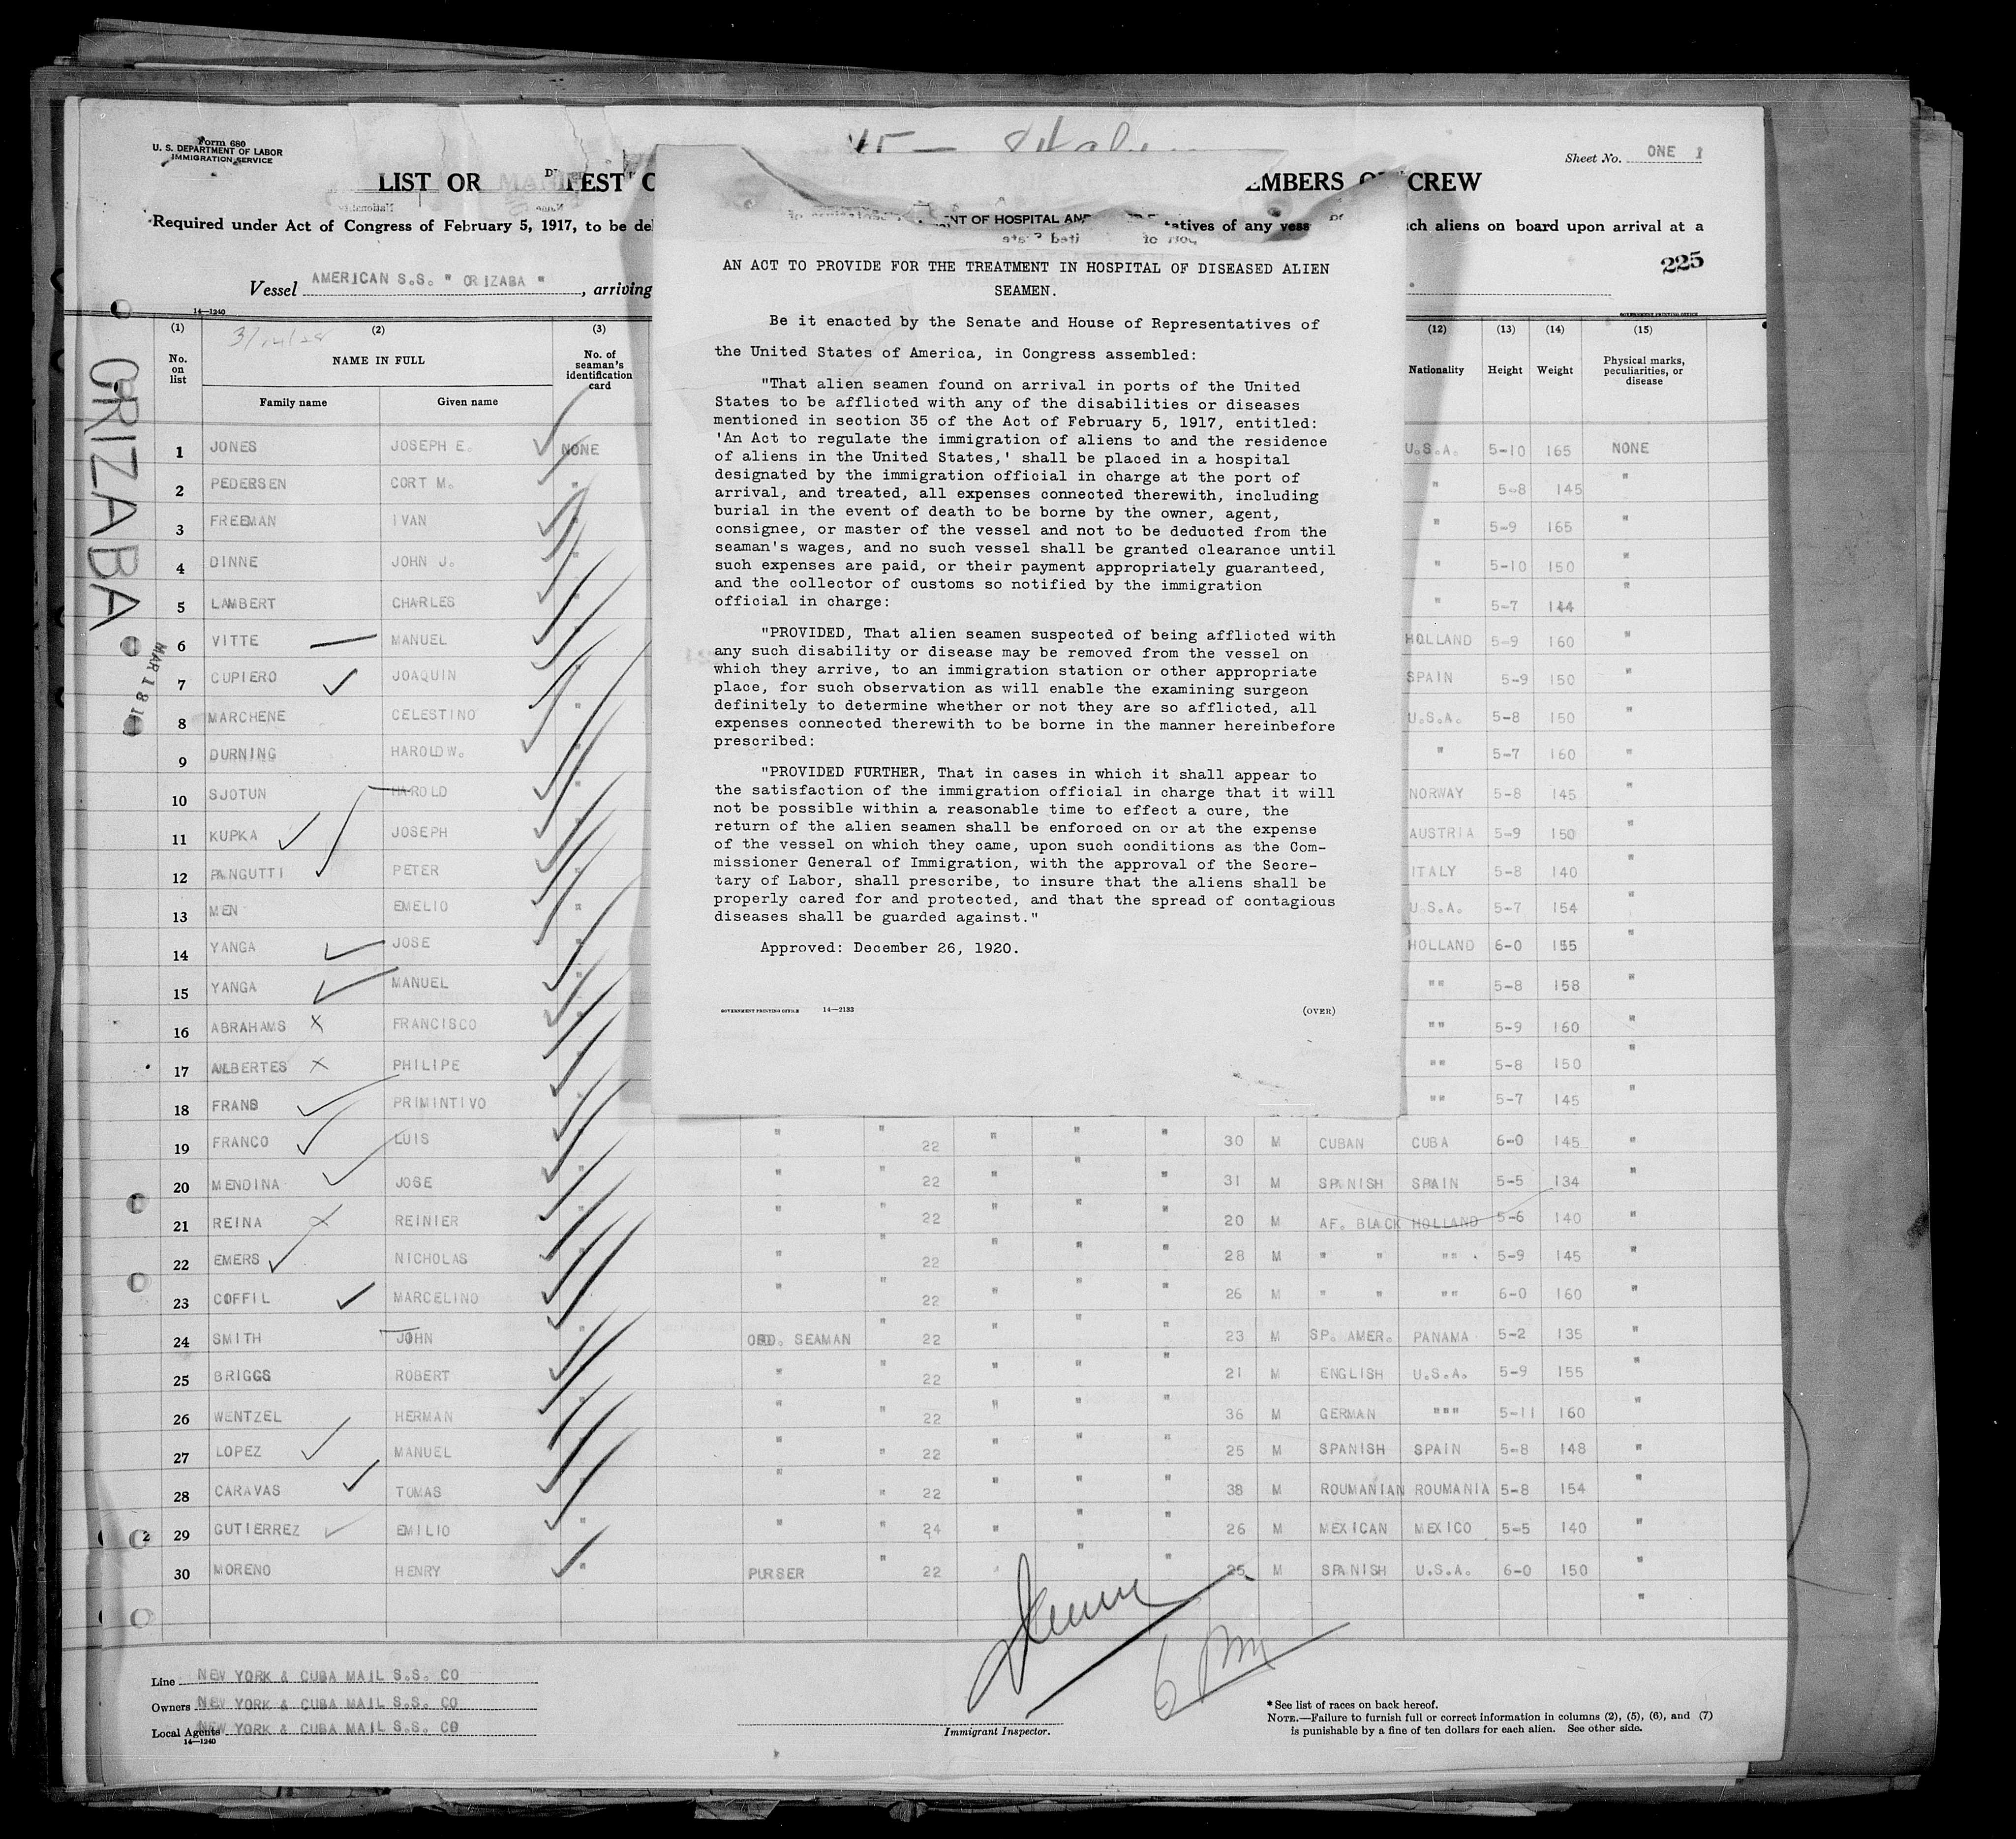 Form 680
U. S. DEPARTMENT OF LABOR
IMMIGRATION SERVICE
Sheet No. ONE 1
LIST OR MANIFEST O EMBERS OF CREW
Required under Act of Congress of February 5, 1917, to be del NT OF HOSPITAL AND tatives of any vess uch aliens on board upon arrival at a
225
Vessel AMERICAN S.S. " ORIZABA ", arriving
14—1240
GOVERNMENT PRINTING OFFICE
ORIZABA
MAR 18 1
AN ACT TO PROVIDE FOR THE TREATMENT IN HOSPITAL OF DISEASED ALIEN
SEAMEN.
Be it enacted by the Senate and House of Representatives of
the United States of America, in Congress assembled:
"That alien seamen found on arrival in ports of the United
States to be afflicted with any of the disabilities or diseases
mentioned in section 35 of the Act of February 5, 1917, entitled:
'An Act to regulate the immigration of aliens to and the residence
of aliens in the United States,' shall be placed in a hospital
designated by the immigration official in charge at the port of
arrival, and treated, all expenses connected therewith, including
burial in the event of death to be borne by the owner, agent,
consignee, or master of the vessel and not to be deducted from the
seaman's wages, and no such vessel shall be granted clearance until
such expenses are paid, or their payment appropriately guaranteed,
and the collector of customs so notified by the immigration
official in charge:
"PROVIDED, That alien seamen suspected of being afflicted with
any such disability or disease may be removed from the vessel on
which they arrive, to an immigration station or other appropriate
place, for such observation as will enable the examining surgeon
definitely to determine whether or not they are so afflicted, all
expenses connected therewith to be borne in the manner hereinbefore
prescribed:
"PROVIDED FURTHER, That in cases in which it shall appear to
the satisfaction of the immigration official in charge that it will
not be possible within a reasonable time to effect a cure, the
return of the alien seamen shall be enforced on or at the expense
of the vessel on which they came, upon such conditions as the Com-
missioner General of Immigration, with the approval of the Secre-
tary of Labor, shall prescribe, to insure that the aliens shall be
properly cared for and protected, and that the spread of contagious
diseases shall be guarded against."
Approved: December 26, 1920.
GOVERNMENT PRINTING OFFICE 14—2133 (OVER)
(1) (2) (3) (12) (13) (14) (15)
No. on list NAME IN FULL No. of seaman's identification card Nationality Height Weight Physical marks, peculiarities, or disease
Family name Given name
1 JONES JOSEPH E. NONE U.S.A. 5-10 165 NONE
2 PEDERSEN CORT M. " " 5-8 145 "
3 FREEMAN IVAN " " 5-9 165 "
4 DINNE JOHN J. " " 5-10 150 "
5 LAMBERT CHARLES " " 5-7 144 "
6 VITTE MANUEL " HOLLAND 5-9 160 "
7 CUPIERO JOAQUIN " SPAIN 5-9 150 "
8 MARCHENE CELESTINO " U.S.A. 5-8 150 "
9 DURNING HAROLD W. " " 5-7 160 "
10 SJOTUN HAROLD " NORWAY 5-8 145 "
11 KUPKA JOSEPH " AUSTRIA 5-9 150 "
12 PANGUTTI PETER " ITALY 5-8 140 "
13 MEN EMELIO " U.S.A. 5-7 154 "
14 YANGA JOSE " HOLLAND 6-0 155 "
15 YANGA MANUEL " "" 5-8 158 "
16 ABRAHAMS X FRANCISCO " "" 5-9 160 "
17 ALBERTES X PHILIPE " "" 5-8 150 "
18 FRANS PRIMINTIVO " "" 5-7 145 "
19 FRANCO LUIS " " " 22 " " " 30 M CUBAN CUBA 6-0 145 "
20 MENDINA JOSE " " " 22 " " " 31 M SPANISH SPAIN 5-5 134 "
21 REINA X REINIER " " " 22 " " " 20 M AF. BLACK HOLLAND 5-6 140 "
22 EMERS NICHOLAS " " " 22 " " " 28 M " " "" 5-9 145 "
23 COFFIL MARCELINO " " " 22 " " " 26 M " " "" 6-0 160 "
24 SMITH JOHN " ORD. SEAMAN " 22 " " " 23 M SP. AMER. PANAMA 5-2 135 "
25 BRIGGS ROBERT " " " 22 " " " 21 M ENGLISH U.S.A. 5-9 155 "
26 WENTZEL HERMAN " " " 22 " " " 36 M GERMAN """ 5-11 160 "
27 LOPEZ MANUEL " " " 22 " " " 25 M SPANISH SPAIN 5-8 148 "
28 CARAVAS TOMAS " " " 22 " " " 38 M ROUMANIAN ROUMANIA 5-8 154 "
2 29 GUTIERREZ EMILIO " " " 24 " " " 26 M MEXICAN MEXICO 5-5 140 "
30 MORENO HENRY " PURSER " 22 " " " 25 M SPANISH U.S.A. 6-0 150 "
"
6 PM
Line NEW YORK & CUBA MAIL S.S. CO
Owners NEW YORK & CUBA MAIL S.S. CO
Local Agents NEW YORK & CUBA MAIL S.S. CO
14—1240
Immigrant Inspector.
* See list of races on back hereof.
NOTE.—Failure to furnish full or correct information in columns (2), (5), (6), and (7)
is punishable by a fine of ten dollars for each alien. See other side.